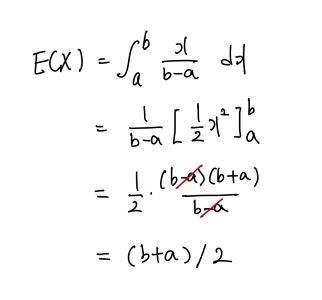 E(X) = ∫_a^b x/(b-a) dx
= 1/(b-a) [ 1/2 x² ]_a^b
= 1/2 · (b-a)(b+a)/(b-a)
= (b+a)/2